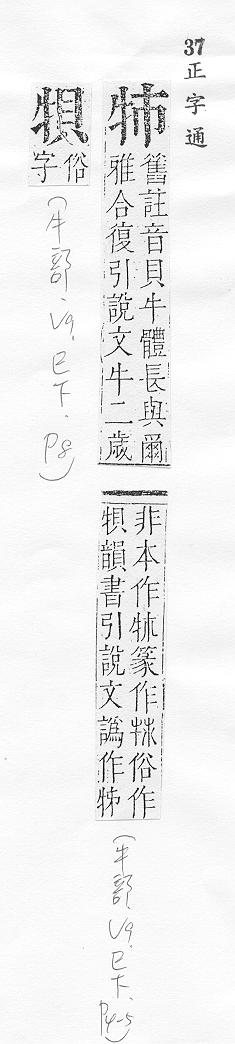 37正字通
牬
舊註音貝牛體長與爾
雅合復引說文牛二歲
非本作㸬篆作俗作
㸽韻書引說文譌作
(牛部.V9.巳下.P4-5)
㸽
俗
字
(牛部.V9.巳下.P8)